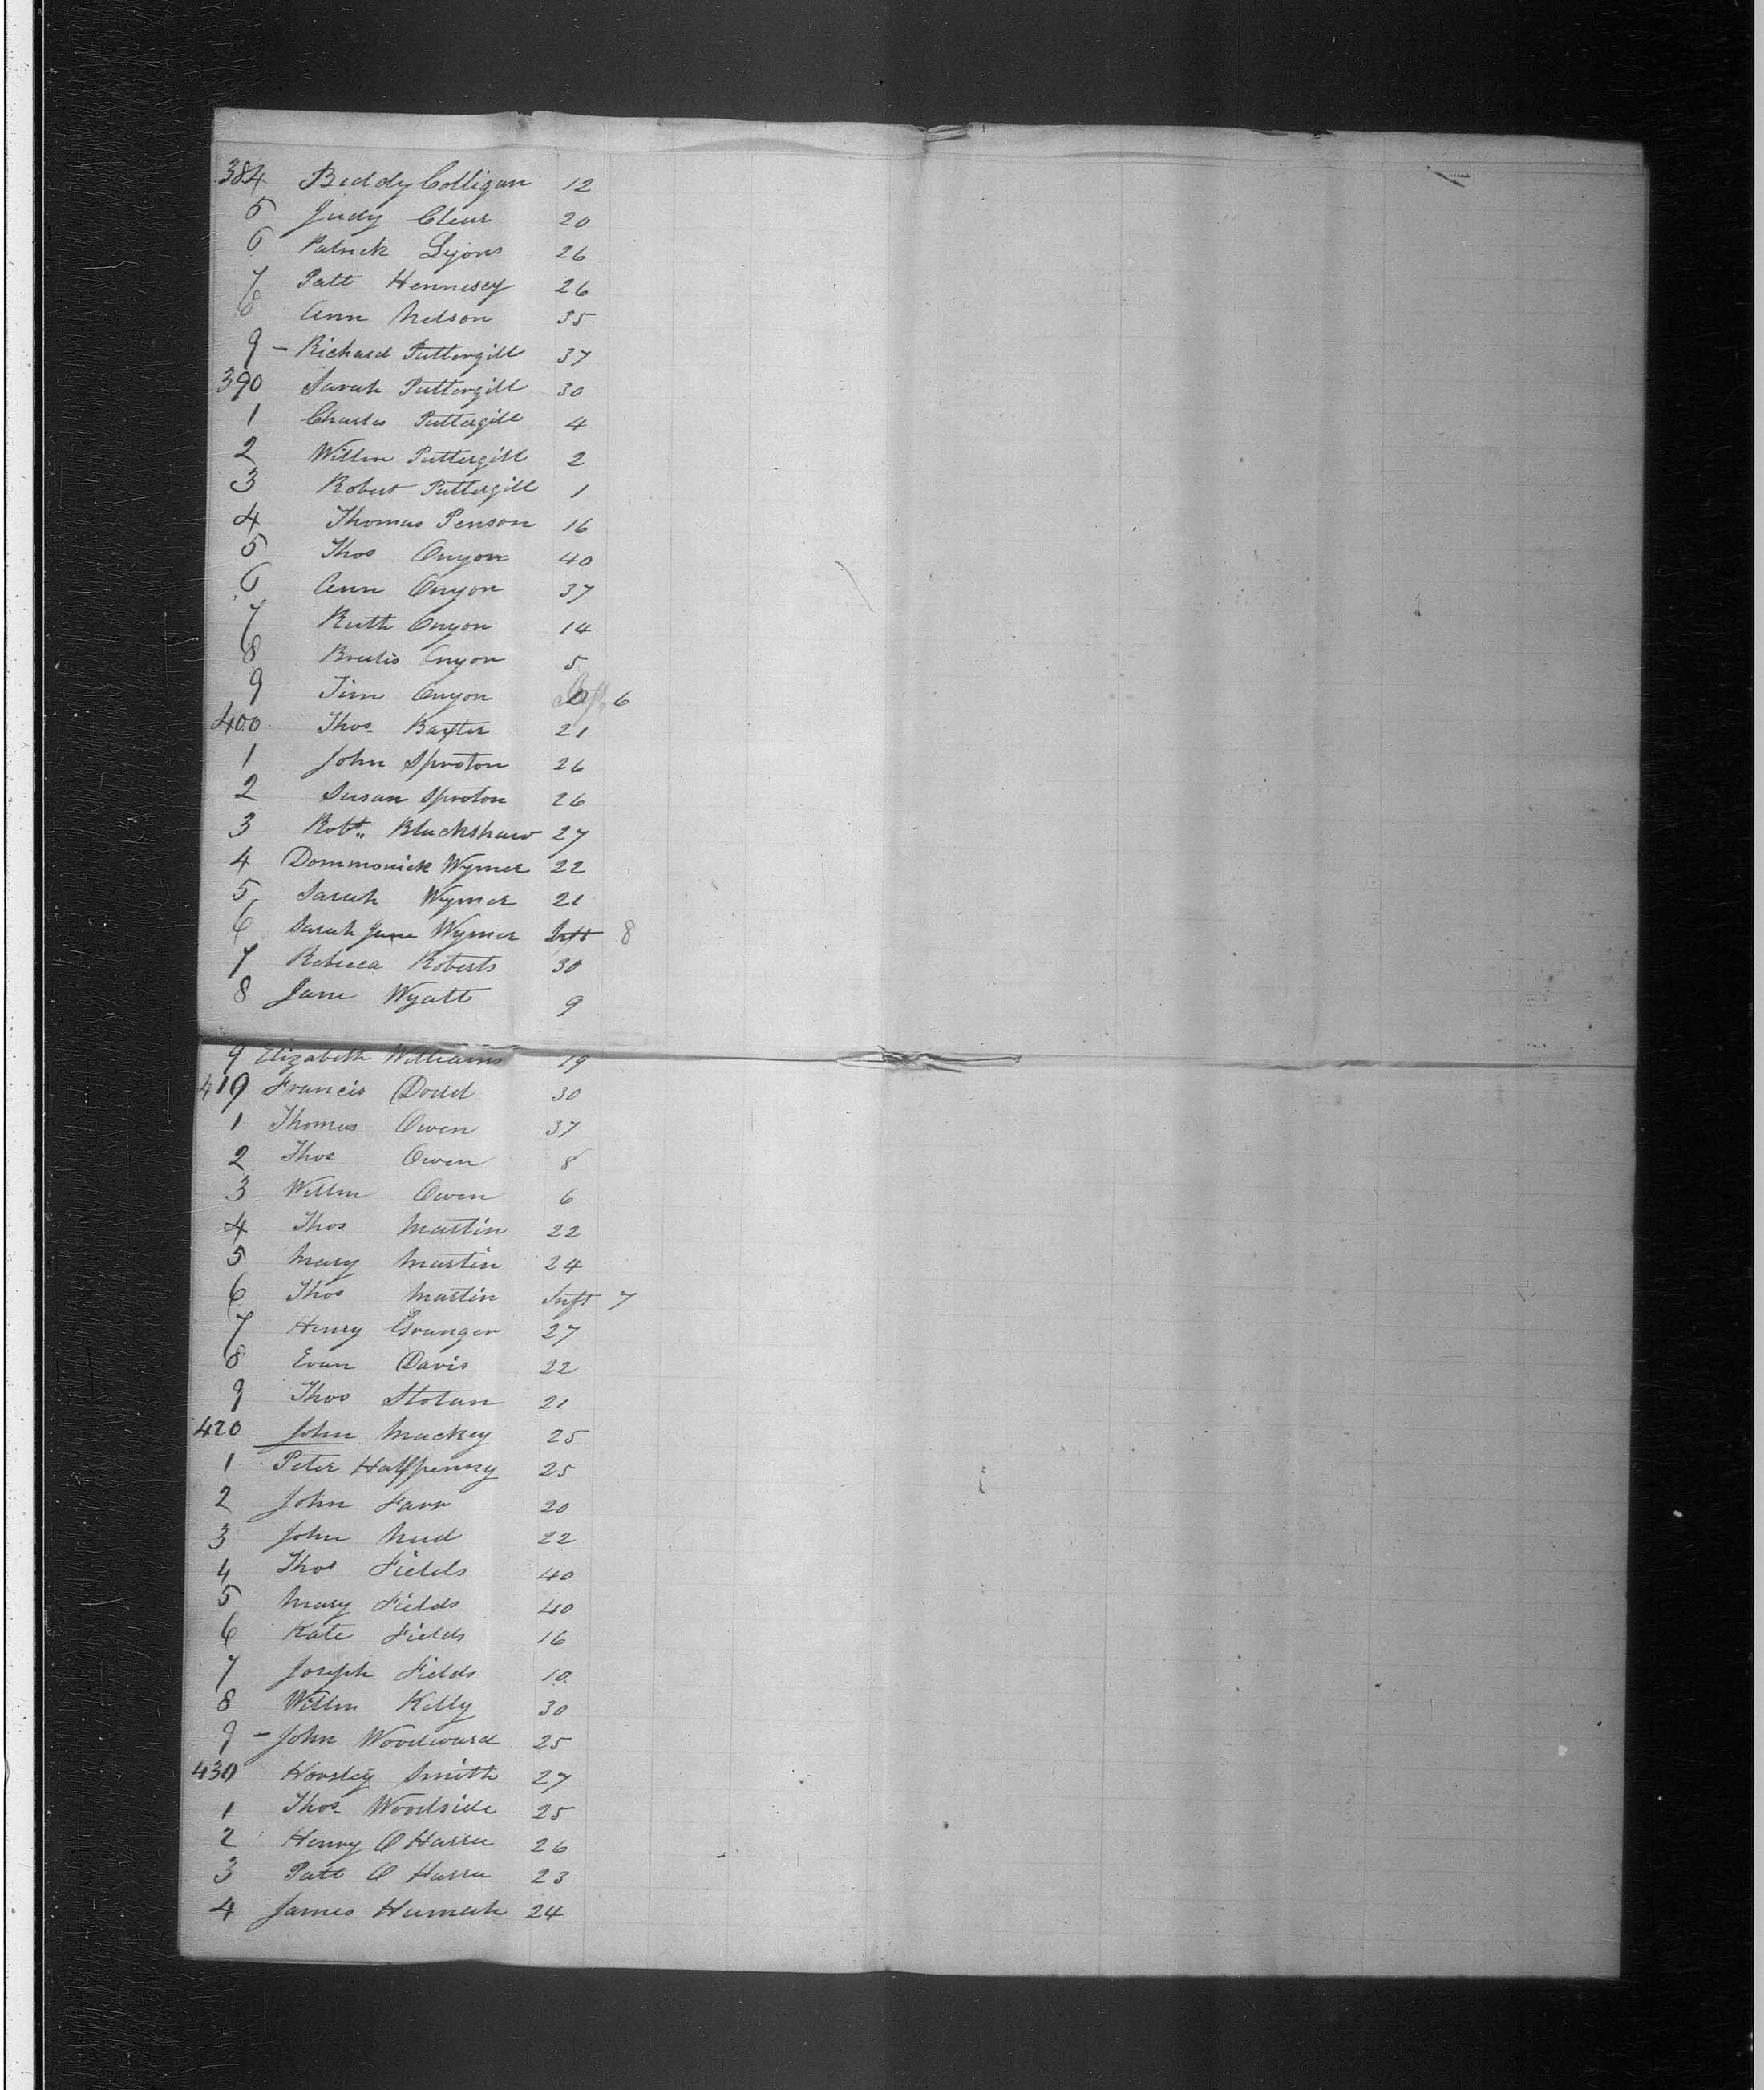 384 Biddy Colligan 12
5 Judy Clear 20
6 Patrick Lyons 26
7 Patt Hennesey 26
8 Ann Nelson 35
9 - Richard Puttergill 37
390 Sarah Puttergill 30
1 Charles Puttergill 4
2 Willm Puttergill 2
3 Robert Puttergill 1
4 Thomas Penson 16
5 Thos Onyon 40
6 Ann Onyon 37
7 Ruth Onyon 14
8 Onyon 5
9 Jim Onyon 6
400 Thos Baxter 21
1 John Sproton 26
2 Susan Sproton 26
3 Robt Blackshaw 27
4 Dommonick Wymer 22
5 Sarah Wymer 21
6 Sarah Jane Wymer Inft 8
7 Rebecca Roberts 30
8 Jane Wyatt 9
9 Elizabeth Williams 19
410 Francis Dodd 30
1 Thomas Owen 37
2 Thos Owen 8
3 Willm Owen 6
4 Thos Martin 22
5 Mary Martin 24
6 Thos Martin Inft 7
7 Henry Granger 27
8 Evan Davis 22
9 Thos Stotan 21
420 John Mackey 25
1 Peter Halfpenny 25
2 John Farr 20
3 John 22
4 Thos Fields 40
5 Mary Fields 40
6 Kate Fields 16
7 Joseph Fields 10
8 Willm Kelly 30
9 - John Woodward 25
430 Horsley Smith 27
1 Thos Woodside 25
2 Henry O Harra 26
3 Patt O Harra 23
4 James 24